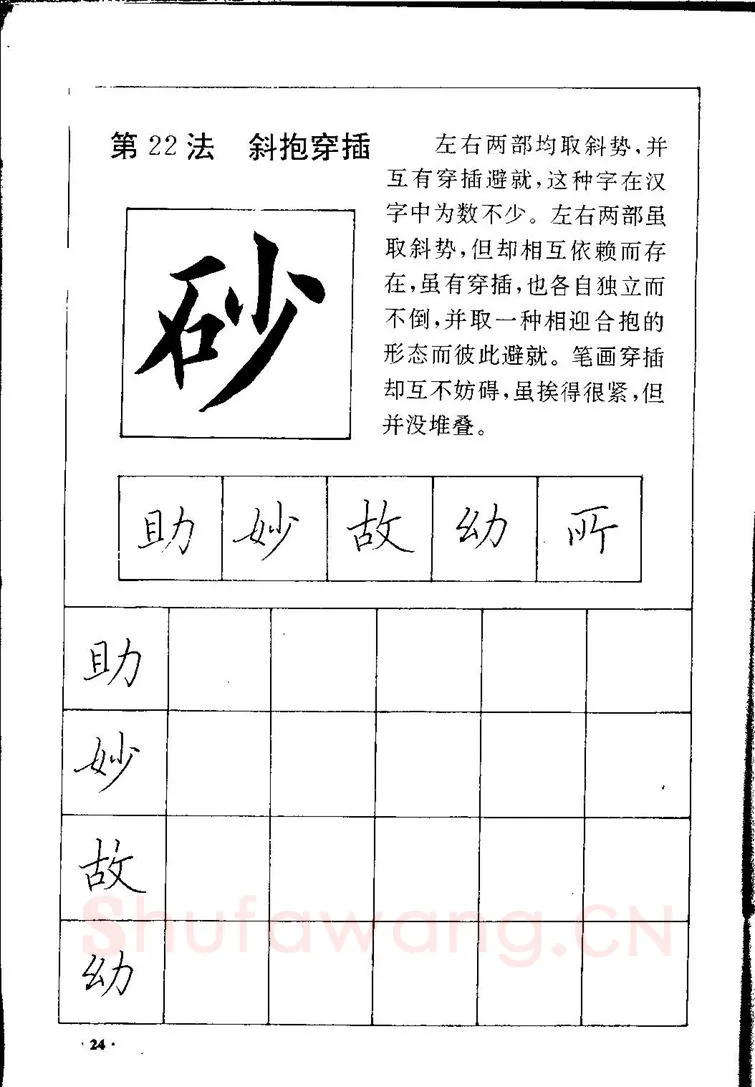 第22法 斜抱穿插
左右两部均取斜势,并
互有穿插避就,这种字在汉
字中为数不少。左右两部虽
取斜势,但却相互依赖而存
在,虽有穿插,也各自独立而
不倒,并取一种相迎合抱的
形态而彼此避就。笔画穿插
却互不妨碍,虽挨得很紧,但
并没堆叠。
砂
助 妙 故 幼 所
助
妙
故
幼
Shufawang.CN
·24·